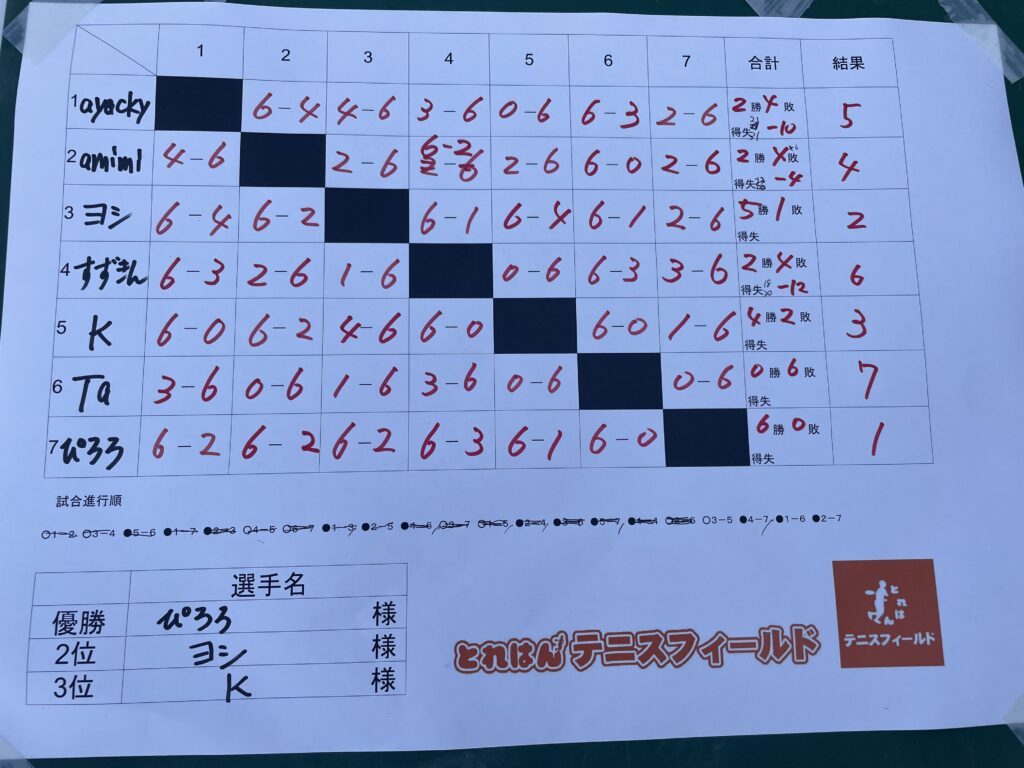 1 2 3 4 5 6 7 合計 結果
1 ayacky 6-4 4-6 3-6 0-6 6-3 2-6 2勝4敗 得失 -10 5
2 amimi 4-6 2-6 6-2 2-6 6-0 2-6 2勝4敗 得失 -4 4
3 ヨシ 6-4 6-2 6-1 6-4 6-1 2-6 5勝1敗 得失 2
4 すずきん 6-3 2-6 1-6 0-6 6-3 3-6 2勝4敗 得失 -12 6
5 K 6-0 6-2 4-6 6-0 6-0 1-6 4勝2敗 得失 3
6 Ta 3-6 0-6 1-6 3-6 0-6 0-6 0勝6敗 得失 7
7 ぴろろ 6-2 6-2 6-2 6-3 6-1 6-0 6勝0敗 得失 1
試合進行順
○1-2 ○3-4 ●5-6 ●1-7 ●2-3 ○4-5 ○6-7 ●1-3 ●2-5 ●4-6 ○3-7 ○1-5 ●2-4 ●3-6 ●5-7 ●1-4 ○2-6 ○3-5 ●4-7 ●1-6 ●2-7
選手名
優勝 ぴろろ 様
2位 ヨシ 様
3位 K 様
とれはんテニスフィールド
とれはん
テニスフィールド